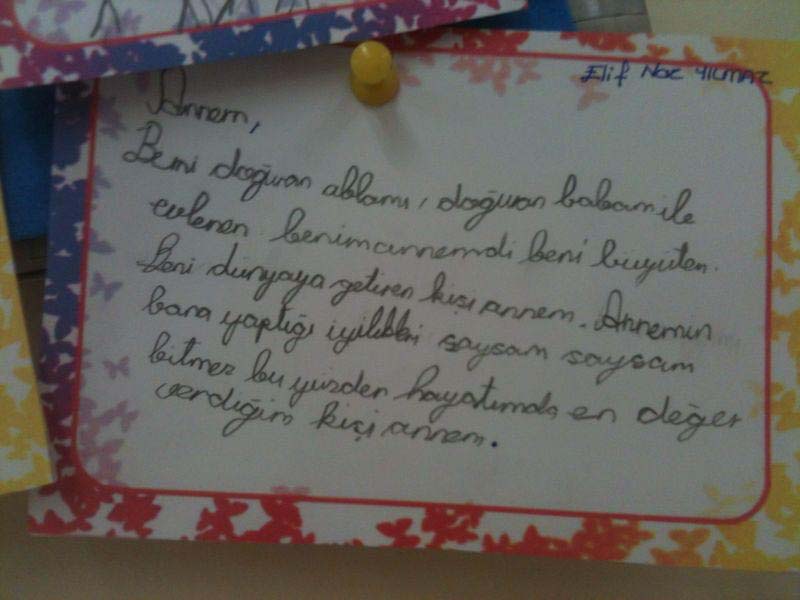 Elif Naz YILMAZ
Annem,
Beni doğuran ablamı, doğuran babam ile
evlenen benim annemdi beni büyüten.
Beni dünyaya getiren kişi annem. Annemin
bana yaptığı iyilikleri saysam saysam
bitmez bu yüzden hayatımda en değer
verdiğim kişi annem.